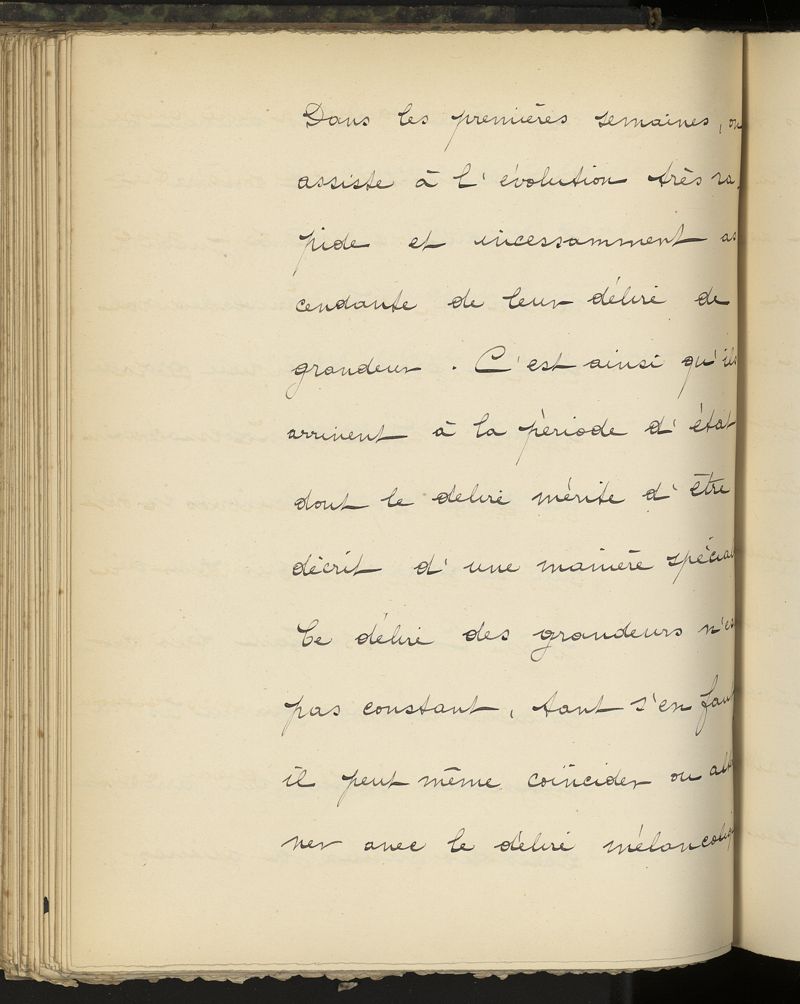 Dans les premières semaines, on
assiste à l'évolution très ra-
pide et incessamment as
cendante de leur délire de
grandeur. C'est ainsi qu'ils
arrivent à la période d'état
dont le délire mérite d'être
décrit d'une manière spécial
Ce délire des grandeurs n'es
pas constant, tant s'en faut
il peut même coïncider ou alt
ner avec le délire mélancoliq